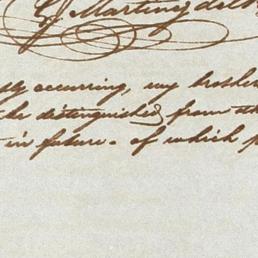 G. Martinez del
occurring, my brother
the distinguished from the
in future. of which